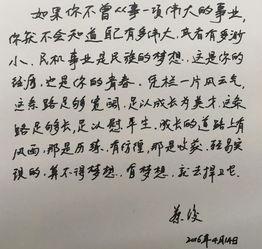 如果你不曾从事一项伟大的事业,
你永不会知道自己有多伟大,或者有多渺
小。民机事业是民族的梦想,这是你的
经济,也是你的青春。凭栏一片风云气,
这条路足够宽阔,足以成长为英才,这条
路足够长,足以慰平生。成长的道路上有
风雨,那是历练,有彷徨,那是收获。轻易实
现的,算不得梦想。有梦想,就去捍卫它。
2016年4月14日